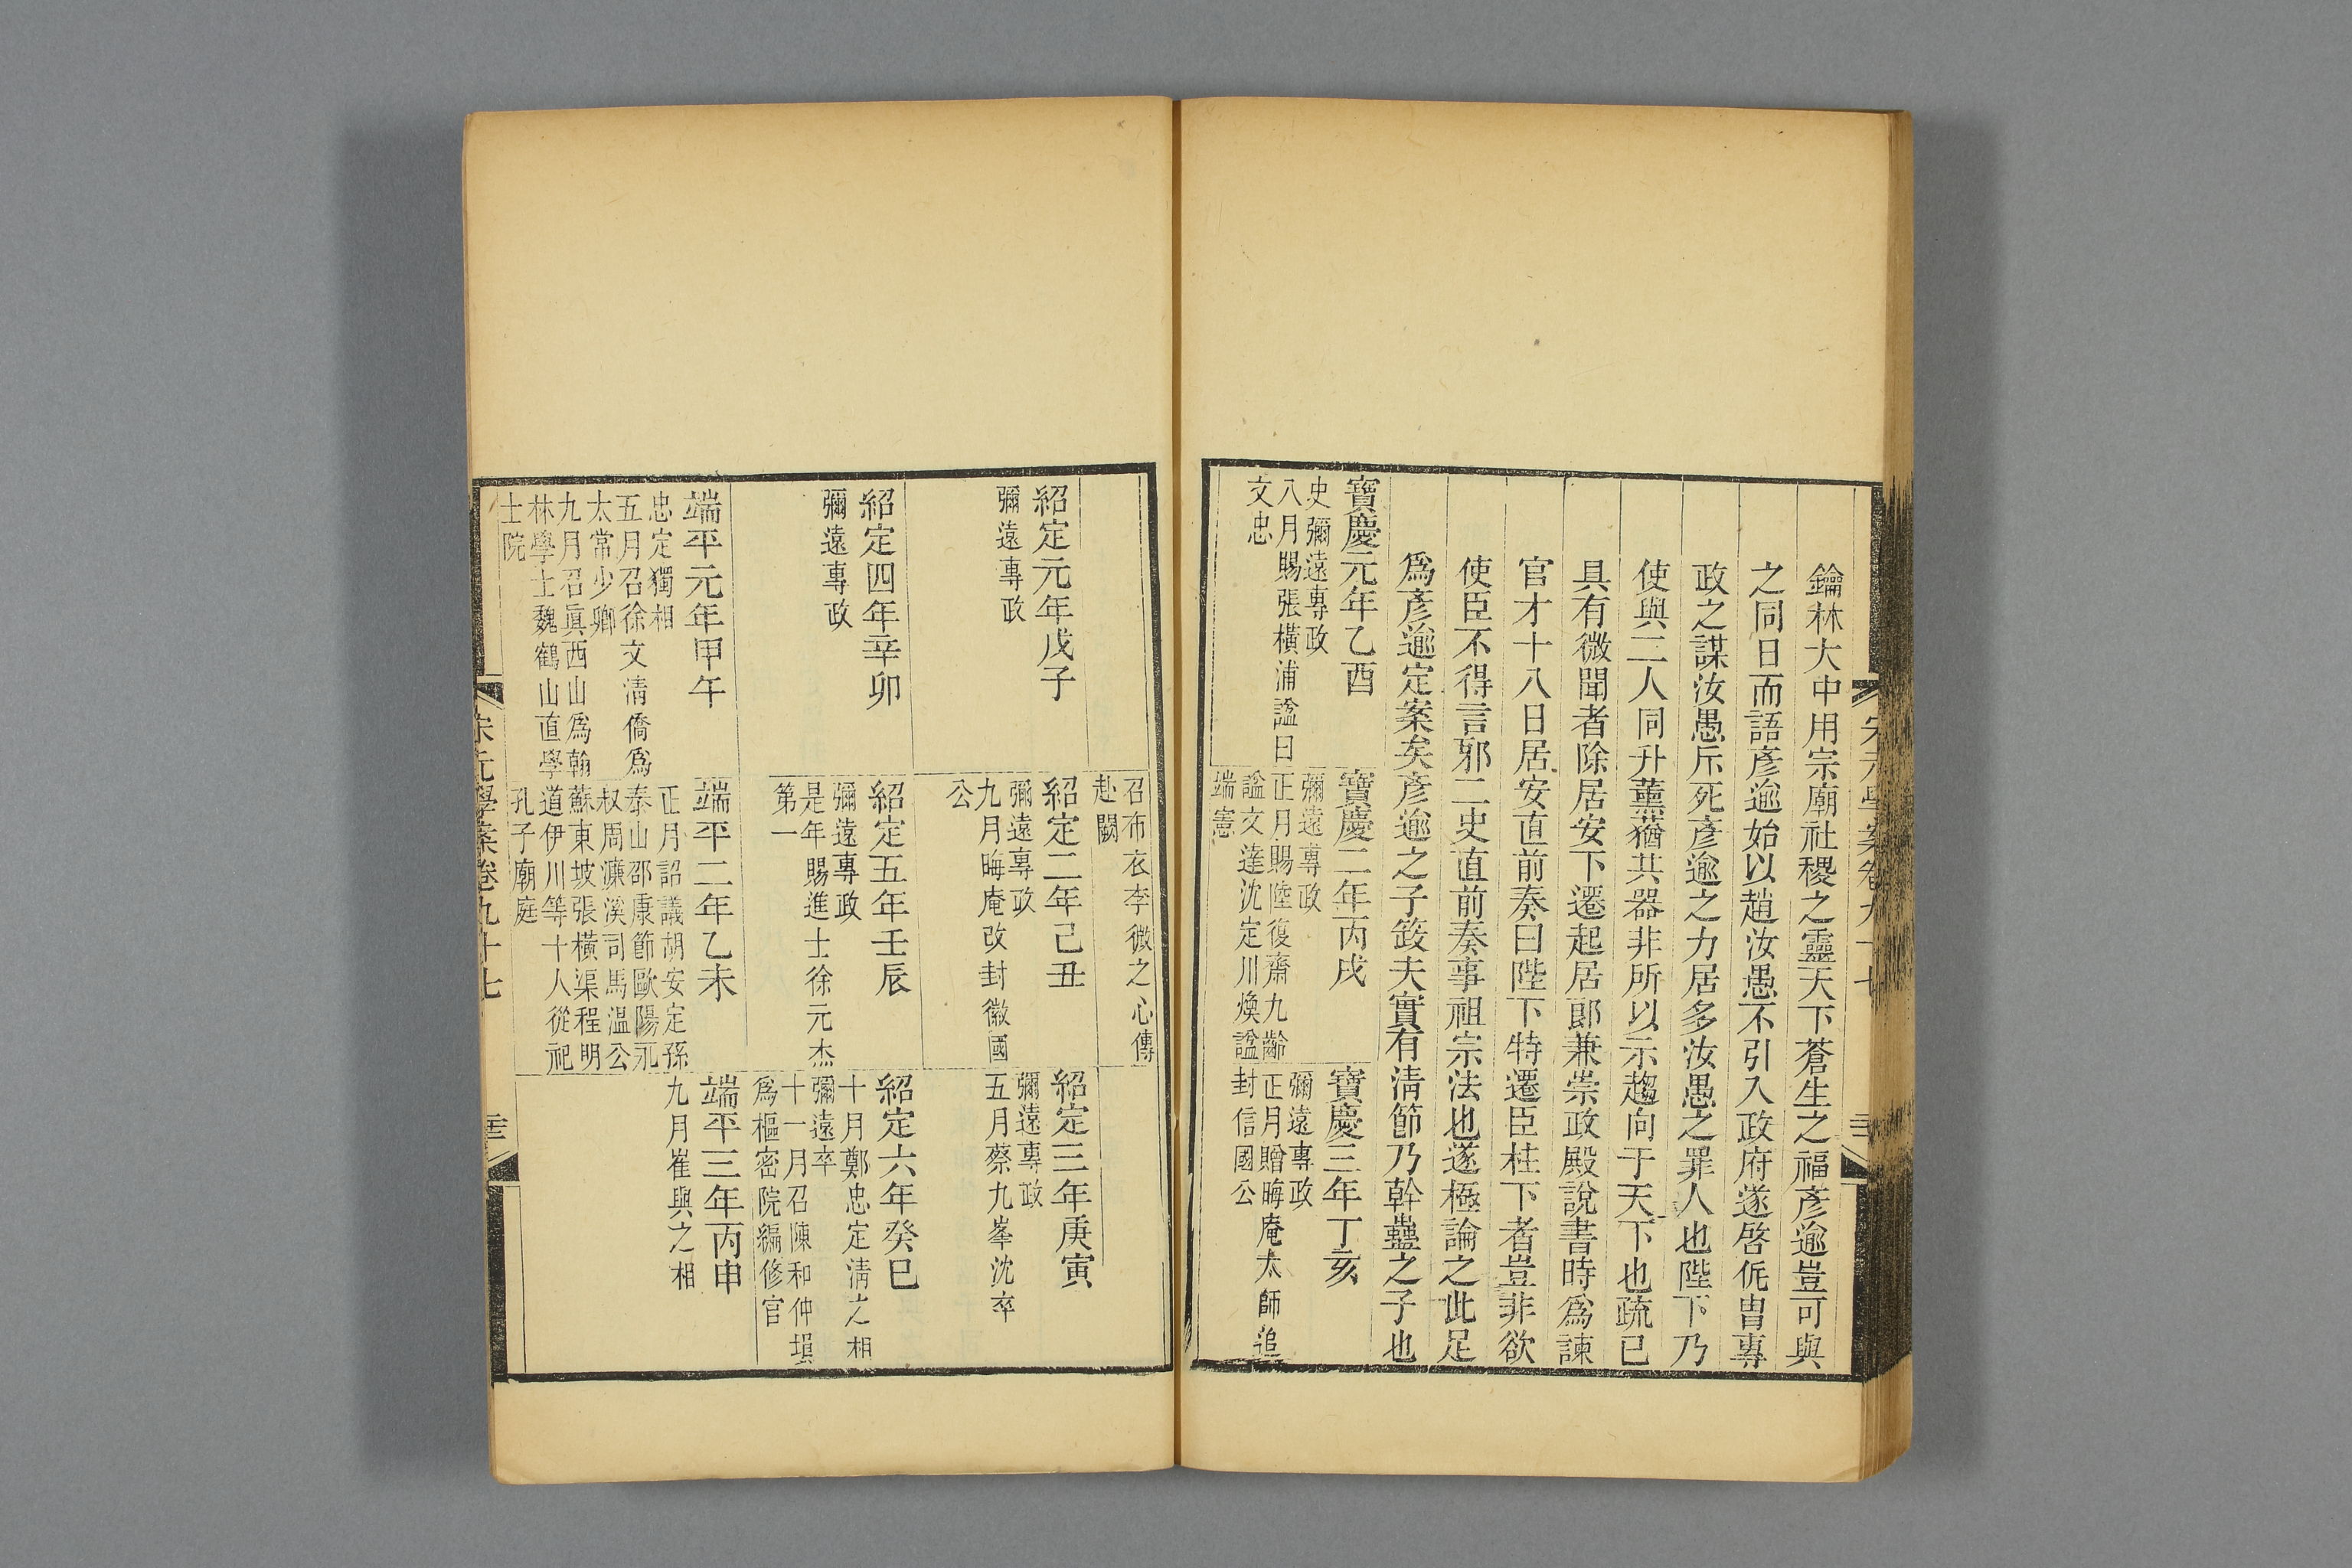 宋元學案卷九十七
鑰林大中用宗廟社稷之靈天下蒼生之福彥逾豈可與
之同日而語彥逾始以趙汝愚不引入政府遂啓侂胄專
政之謀汝愚斥死彥逾之力居多汝愚之罪人也陛下乃
使與二人同升薰蕕共器非所以示趨向于天下也疏已
具有微聞者除居安下遷起居郎兼崇政殿說書時爲諫
官才十八日居安直前奏曰陛下特遷臣柱下者豈非欲
使臣不得言邪二史直前奏事祖宗法也遂極論之此足
爲彥逾定案矣彥逾之子篈夫實有淸節乃幹蠱之子也
寶慶元年乙酉
史彌遠專政
八月賜張橫浦諡曰
文忠
寶慶二年丙戌
彌遠專政
正月賜陸復齋九齡
諡文達沈定川煥諡
端憲
寶慶三年丁亥
彌遠專政
正月贈晦庵太師追
封信國公
召布衣李微之心傳
赴闕
紹定元年戊子
彌遠專政
紹定二年己丑
彌遠專政
九月晦庵改封徽國
公
紹定三年庚寅
彌遠專政
五月蔡九峯沈卒
紹定四年辛卯
彌遠專政
紹定五年壬辰
彌遠專政
是年賜進士徐元杰
第一
紹定六年癸巳
十月鄭忠定淸之相
彌遠卒
十一月召陳和仲塤
爲樞密院編修官
端平元年甲午
忠定獨相
五月召徐文淸僑爲
太常少卿
九月召眞西山爲翰
林學士魏鶴山直學
士院
端平二年乙未
正月詔議胡安定孫
泰山邵康節歐陽永
叔周濂溪司馬溫公
蘇東坡張橫渠程明
道伊川等十人從祀
孔子廟庭
端平三年丙申
九月崔與之相
宋元學案卷九十七